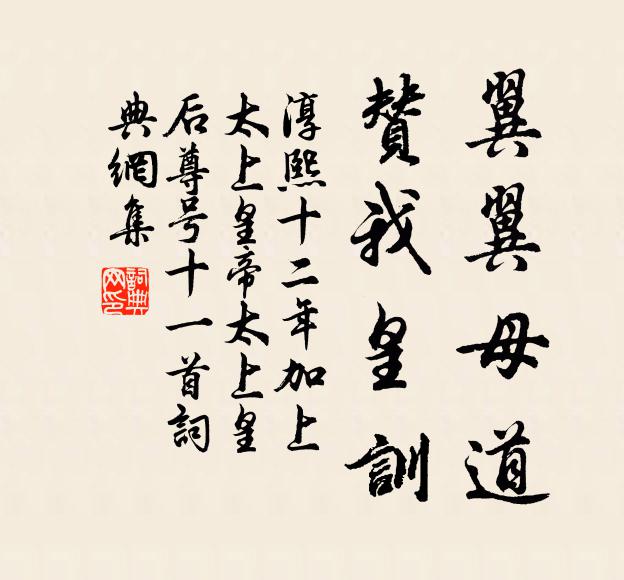 翼翼母道
贊我皇訓
淳熙十二年加上
太上皇帝太上皇
后尊号十一首詞
典網集
詞典
网印